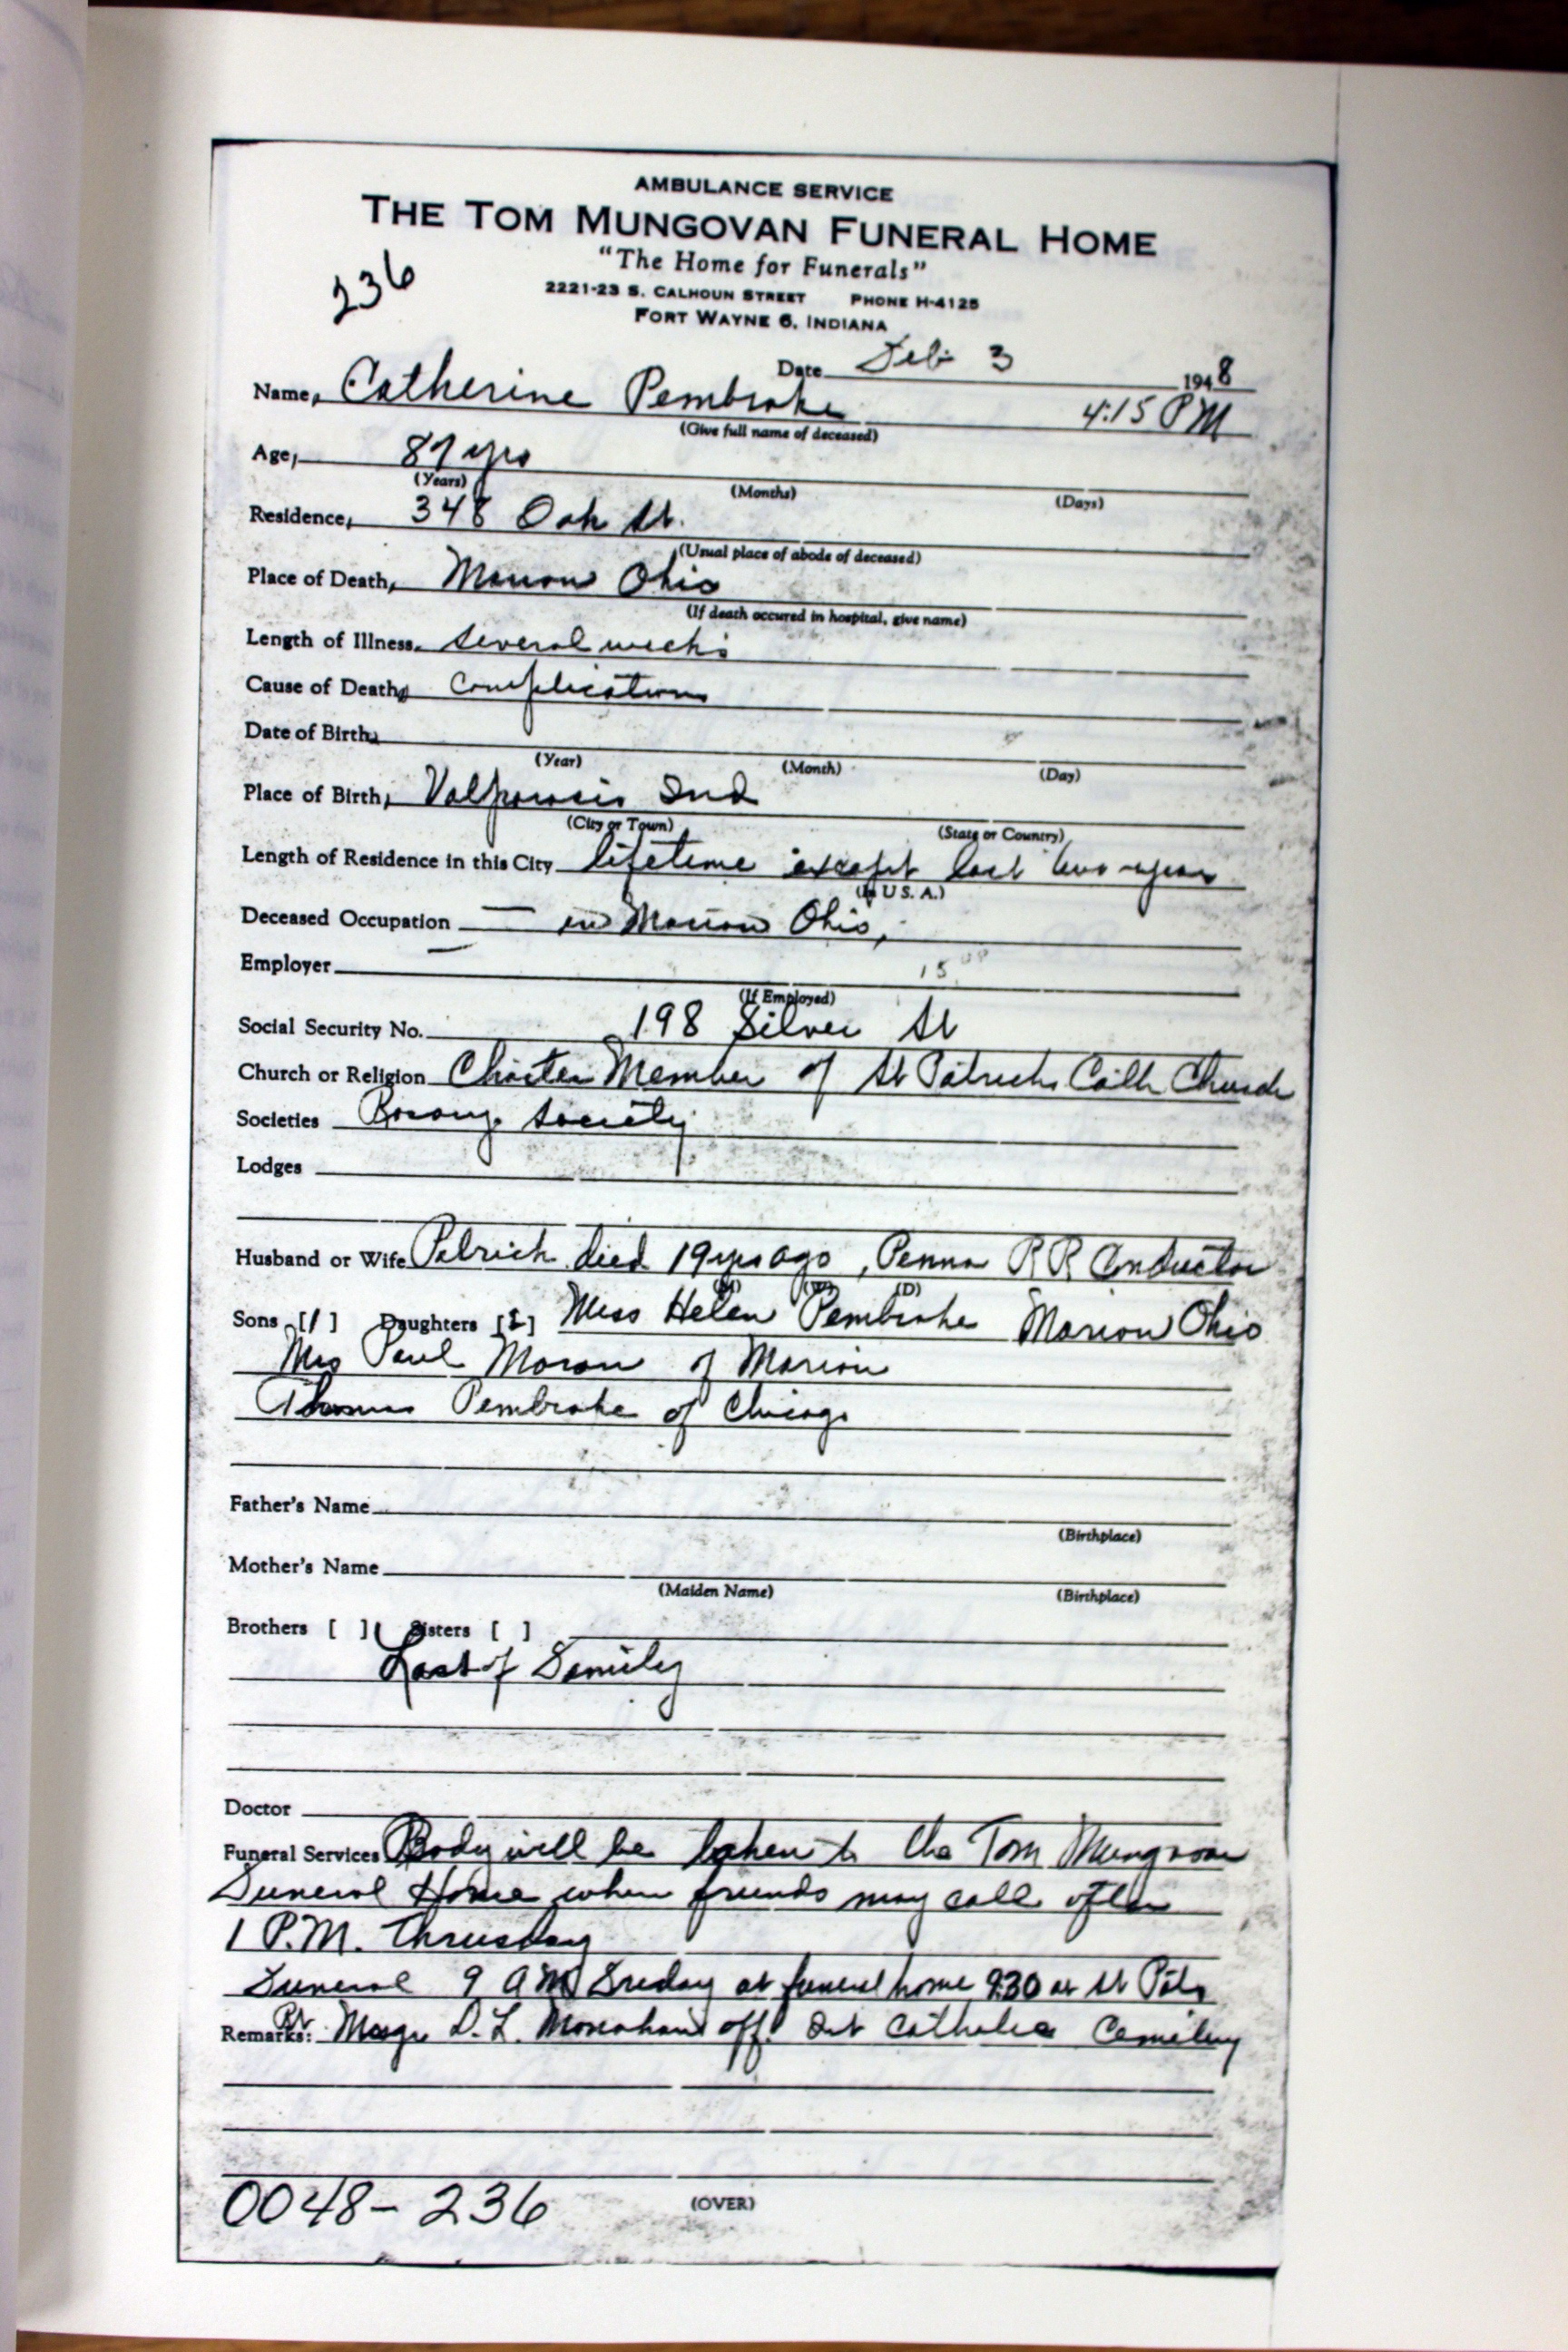 AMBULANCE SERVICE
THE TOM MUNGOVAN FUNERAL HOME
"The Home for Funerals"
236
2221-23 S. CALHOUN STREET PHONE H-4125
FORT WAYNE 6, INDIANA
Date Feb 3 1948
Name, Catherine Pembroke 4:15 PM
(Give full name of deceased)
Age, 87 yrs
(Years) (Months) (Days)
Residence, 348 Oak St.
(Usual place of abode of deceased)
Place of Death, Marion Ohio
(If death occured in hospital, give name)
Length of Illness, several weeks
Cause of Death, Complications
Date of Birth,
(Year) (Month) (Day)
Place of Birth, Valparaiso Ind
(City or Town) (State or Country)
Length of Residence in this City lifetime except last two years
(In U.S.A.)
Deceased Occupation — in Marion Ohio,
Employer — 15
(If Employed)
Social Security No. 198 Silver St
Church or Religion Charter Member of St Patricks Cath Church
Societies Rosary Society
Lodges
Husband or Wife Patrick died 19 yrs ago, Penna RR Conductor
(D)
Sons [1] Daughters [2] Miss Helen Pembroke Marion Ohio
Mrs Paul Moran of Marion
Thomas Pembroke of Chicago
Father's Name
(Birthplace)
Mother's Name
(Maiden Name) (Birthplace)
Brothers [ ] Sisters [ ]
Last of Family
Doctor
Funeral Services Body will be taken to the Tom Mungovan
Funeral Home where friends may call after
1 P.M. Thrusday
Funeral 9 AM Friday at funeral home 9:30 at St Pats
Remarks: Rt Msgr D. L. Monahan off. Int Catholic Cemetery
0048-236 (OVER)